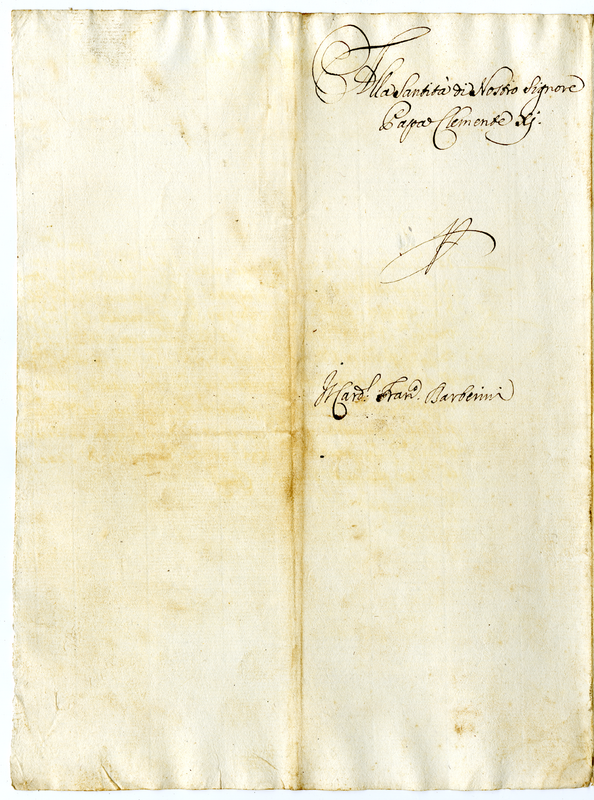 Alla Santità di Nostro Signore
Papa Clemente XJ.
Il Card.l Fran.o Barberini